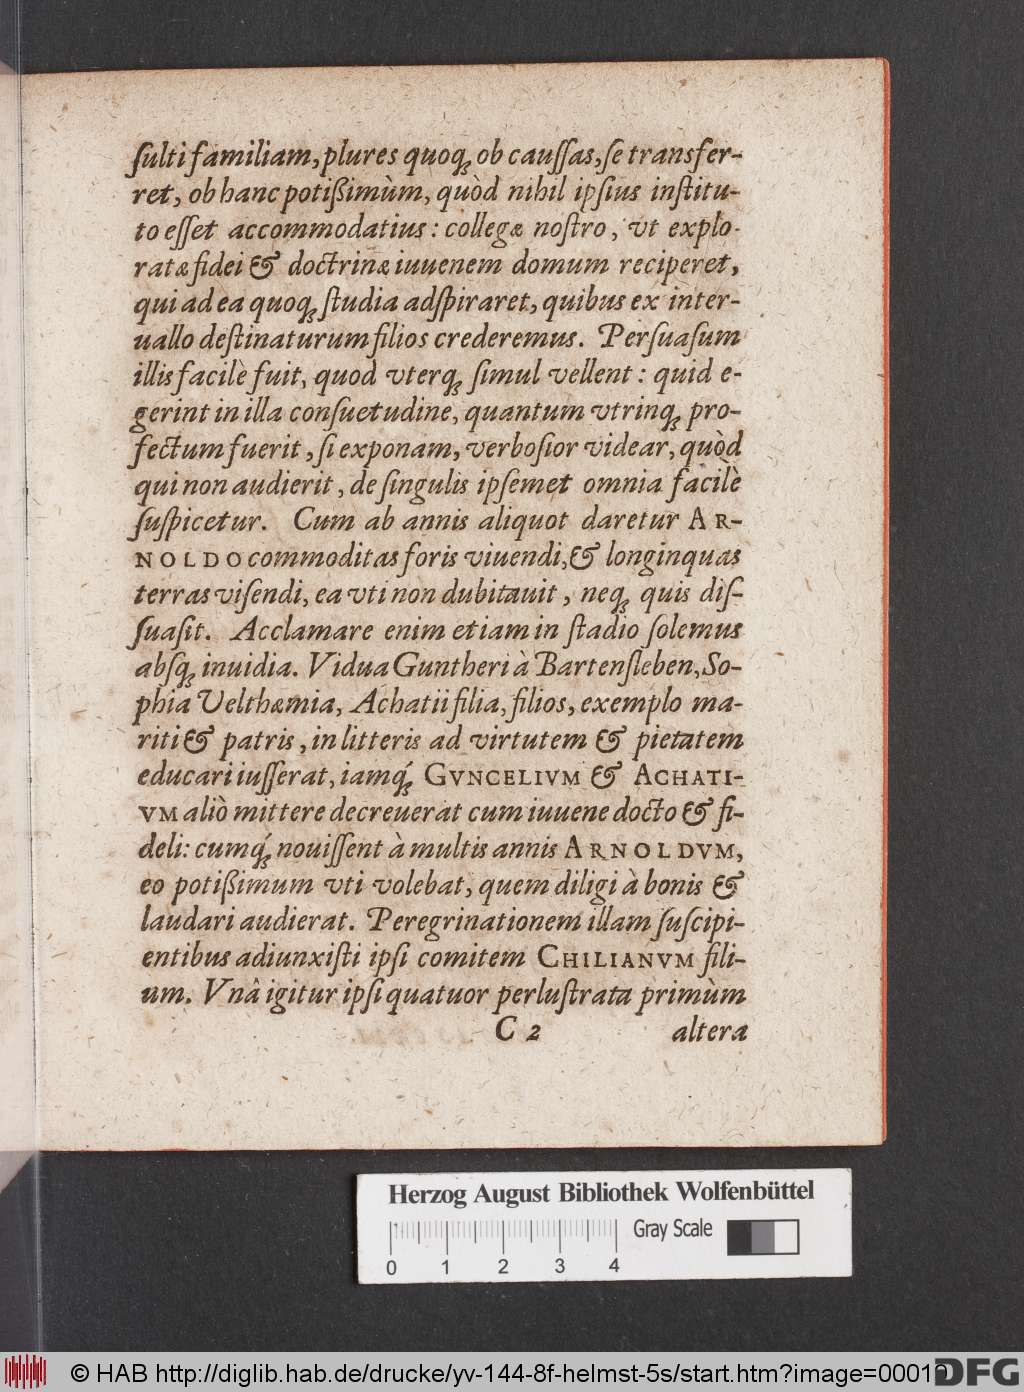 ſulti familiam, plures quoq́; ob cauſſas, ſe transfer-
ret, ob hanc potißimùm, quòd nihil ipſius inſtitu-
to eſſet accommodatius: collegæ noſtro, vt explo-
ratæ fidei & doctrinæ iuuenem domum reciperet,
qui ad ea quoq; ſtudia adſpiraret, quibus ex inter-
uallo deſtinaturum filios crederemus. Perſuaſum
illis facilè fuit, quod vterq; ſimul vellent: quid e-
gerint in illa conſuetudine, quantum vtrinq; pro-
fectum fuerit, ſi exponam, verboſior videar, quòd
qui non audierit, de ſingulis ipſemet omnia facilè
ſuſpicetur. Cum ab annis aliquot daretur AR-
NOLDO commoditas foris viuendi, & longinquas
terras viſendi, ea vti non dubitauit, neq; quis diſ-
ſuaſit. Acclamare enim etiam in ſtadio ſolemus
abſq; inuidia. Vidua Guntheri à Bartenſleben, So-
phia Velthæmia, Achatii filia, filios, exemplo ma-
riti & patris, in litteris ad virtutem & pietatem
educari iuſſerat, iamq́; GVNCELIVM & ACHATI-
VM aliò mittere decreuerat cum iuuene docto & fi-
deli: cumq́; nouiſſent à multis annis ARNOLDVM,
eo potißimum vti volebat, quem diligi à bonis &
laudari audierat. Peregrinationem illam ſuſcipi-
entibus adiunxiſti ipſi comitem CHILIANVM fili-
um. Vnâ igitur ipſi quatuor perluſtrata primùm
C 2 altera
Herzog August Bibliothek Wolfenbüttel
Gray Scale
0 1 2 3 4
© HAB http://diglib.hab.de/drucke/yv-144-8f-helmst-5s/start.htm?image=00019
DFG